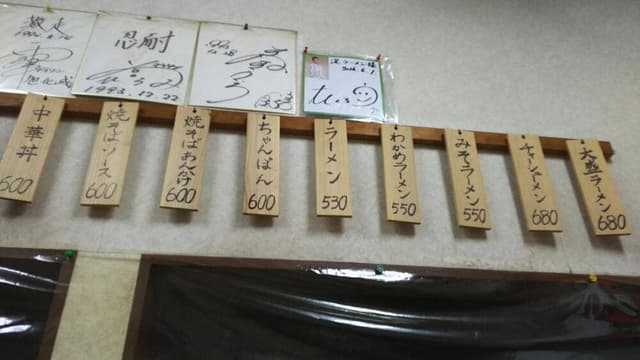 激走
忍耐
1993.12.22
中華丼
600
焼そばソース
600
焼そばあんかけ
600
ちゃんぽん
600
ラーメン
530
わかめラーメン
550
みそラーメン
550
チャーシューメン
680
大盛ラーメン
680